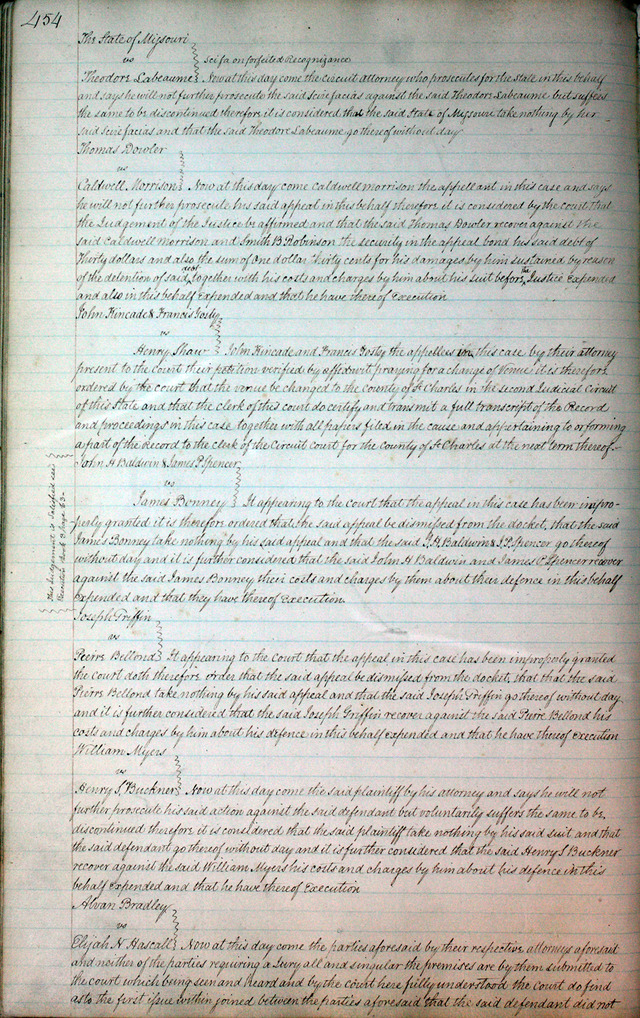 454
The State of Missouri
vs
sci fa on forfeited Recognizance
Theodore Labeaume Now at this day come the circuit attorney who prosecutes for the state in this behalf
and says he will not further prosecute the said Scire facias against the said Theodore Labeaume but suffers
the same to be discontinued therefore it is considered that the said State of Missouri take nothing by her
said Scire facias and that the said Theodore Labeaume go thereof without day
Thomas Dowler
vs
Caldwell Morrison Now at this day come Caldwell Morrison the appellant in this case and says
he will not further prosecute his said appeal in this behalf therefore it is considered by the court that
the Judgement of the Justice be affirmed and that the said Thomas Dowler recover against the
said Caldwell Morrison and Smith B Robinson the security in the appeal bond his said debt of
Thirty dollars and also the sum of One dollar thirty cents for his damages by him sustained by reason
of the detention of said debt together with his costs and charges by him about his suit before the Justice Expended
and also in this behalf Expended and that he have thereof Execution
John Kincade & Francis Tosty
vs
Henry Shaw John Kincade and Francis Tosty the appellees in this case by their attorney
present to the court their petition verified by affidavit praying for a change of Venue it is therefore
ordered by the court that the venue be changed to the county of St Charles in the second Judicial Circuit
of this State and that the clerk of this court do certify and transmit a full transcript of the Record
and proceedings in this case together with all papers filed in the cause and appertaining to or forming
a part of the Record to the clerk of the Circuit court for the County of St Charles at the next term thereof
John H Baldwin & James P Spencer
vs
James Bonney It appearing to the Court that the appeal in this case has been impro-
perly granted it is therefore ordered that the said appeal be dismissed from the docket, that the said
James Bonney take nothing by his said appeal and that the said J. H. Baldwin & J. P. Spencer go thereof
without day and it is further considered that the said John H Baldwin and James P Spencer recover
against the said James Bonney their costs and charges by them about their defence in this behalf
expended and that they have thereof Execution.
This Judgement is Satisfied see
Execution Book Page 63
Joseph Griffin
vs
Pierre Bellond It appearing to the Court that the appeal in this case has been improperly granted
the court doth therefore order that the said appeal be dismissed from the docket, that the said
Pierre Bellond take nothing by his said appeal and that the said Joseph Griffin go thereof without day
and it is further considered that the said Joseph Griffin recover against the said Pierre Bellond his
costs and charges by him about his defence in this behalf expended and that he have thereof execution
William Myers
vs
Henry S. Buckner Now at this day come the said plaintiff by his attorney and says he will not
further prosecute his said action against the said defendant but voluntarily suffers the same to be
discontinued therefore it is considered that the said plaintiff take nothing by his said suit and that
the said defendant go thereof without day and it is further considered that the said Henry S Buckner
recover against the said William Myers his costs and charges by him about his defence in this
behalf Expended and that he have thereof Execution
Alvan Bradley
vs
Elijah N. Hascall Now at this day come the parties aforesaid by their respective attorneys aforesaid
and neither of the parties requiring a Jury all and singular the premises are by them submitted to
the court which being seen and heard and by the court here fully understood the court do find
as to the first issue within joined between the parties aforesaid that the said defendant did not